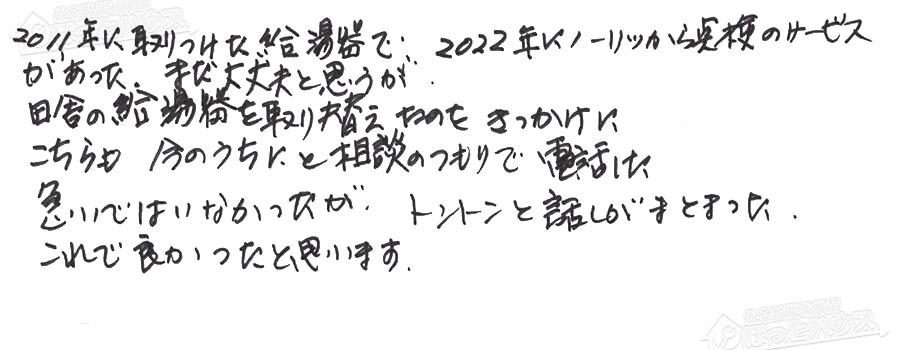 2011年に取りつけた給湯器で、2022年にノーリツから点検のサービス
があった、まだ大丈夫と思うが、
田舎の給湯器を取り替えたのをきっかけに
こちらも今のうちにと相談のつもりで電話した
急いではいなかったが、トントンと話しがまとまった.
これで良かったと思います.
ほっとハウス